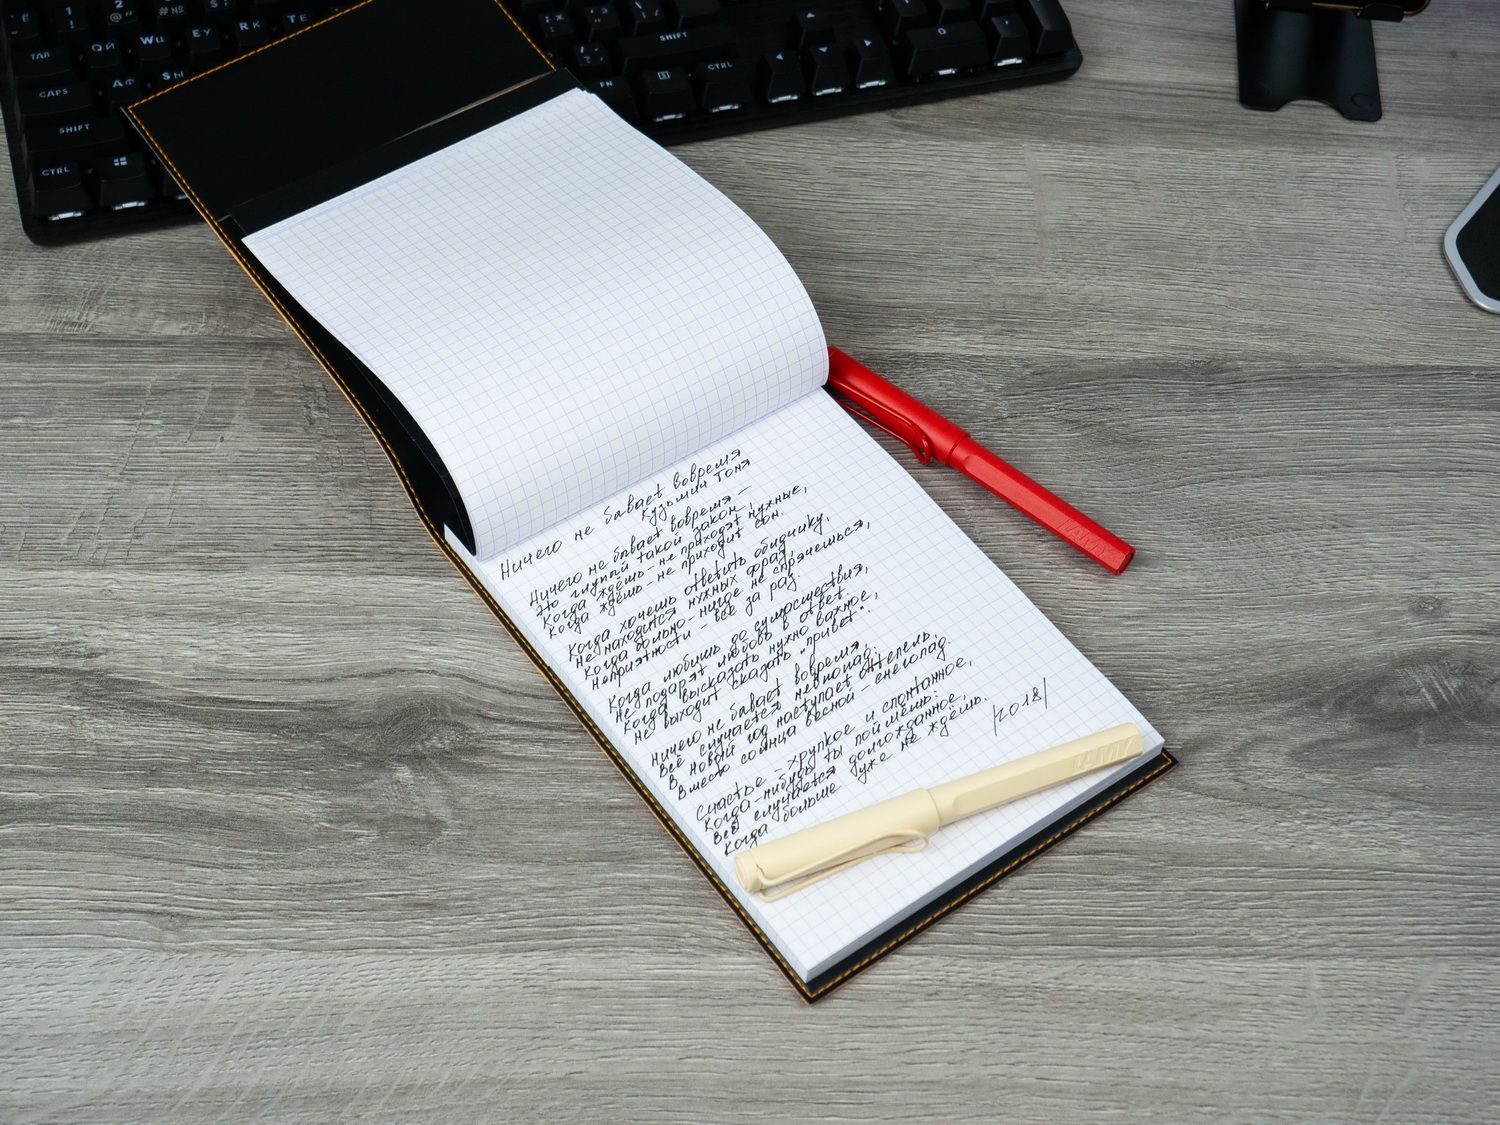 TAB
CAPS
SHIFT
CTRL
SHIFT
CTRL
FN
Ничего не бывает вовремя
Кузьмич Тоня
Ничего не бывает вовремя –
Это глупый такой закон:
Когда ждёшь – не приходят нужные,
Когда ждёшь – не приходит сон.
Когда хочешь ответить обидчику,
Не находится нужных фраз,
Когда больно – нигде не спрячешься,
Неприятности – все за раз.
Когда любишь до сумасшествия,
Не подарят любовь в ответ.
Когда высказать нужно важное,
Не выходит сказать "привет".
Ничего не бывает вовремя,
Всё случается невпопад:
В Новый год наступает оттепель,
Вместо солнца весной – снегопад.
Счастье – хрупкое и спонтанное,
Когда-нибудь ты поймёшь:
Всё случается долгожданное,
Когда больше уже не ждёшь.
/2018/
LAMY
LAMY